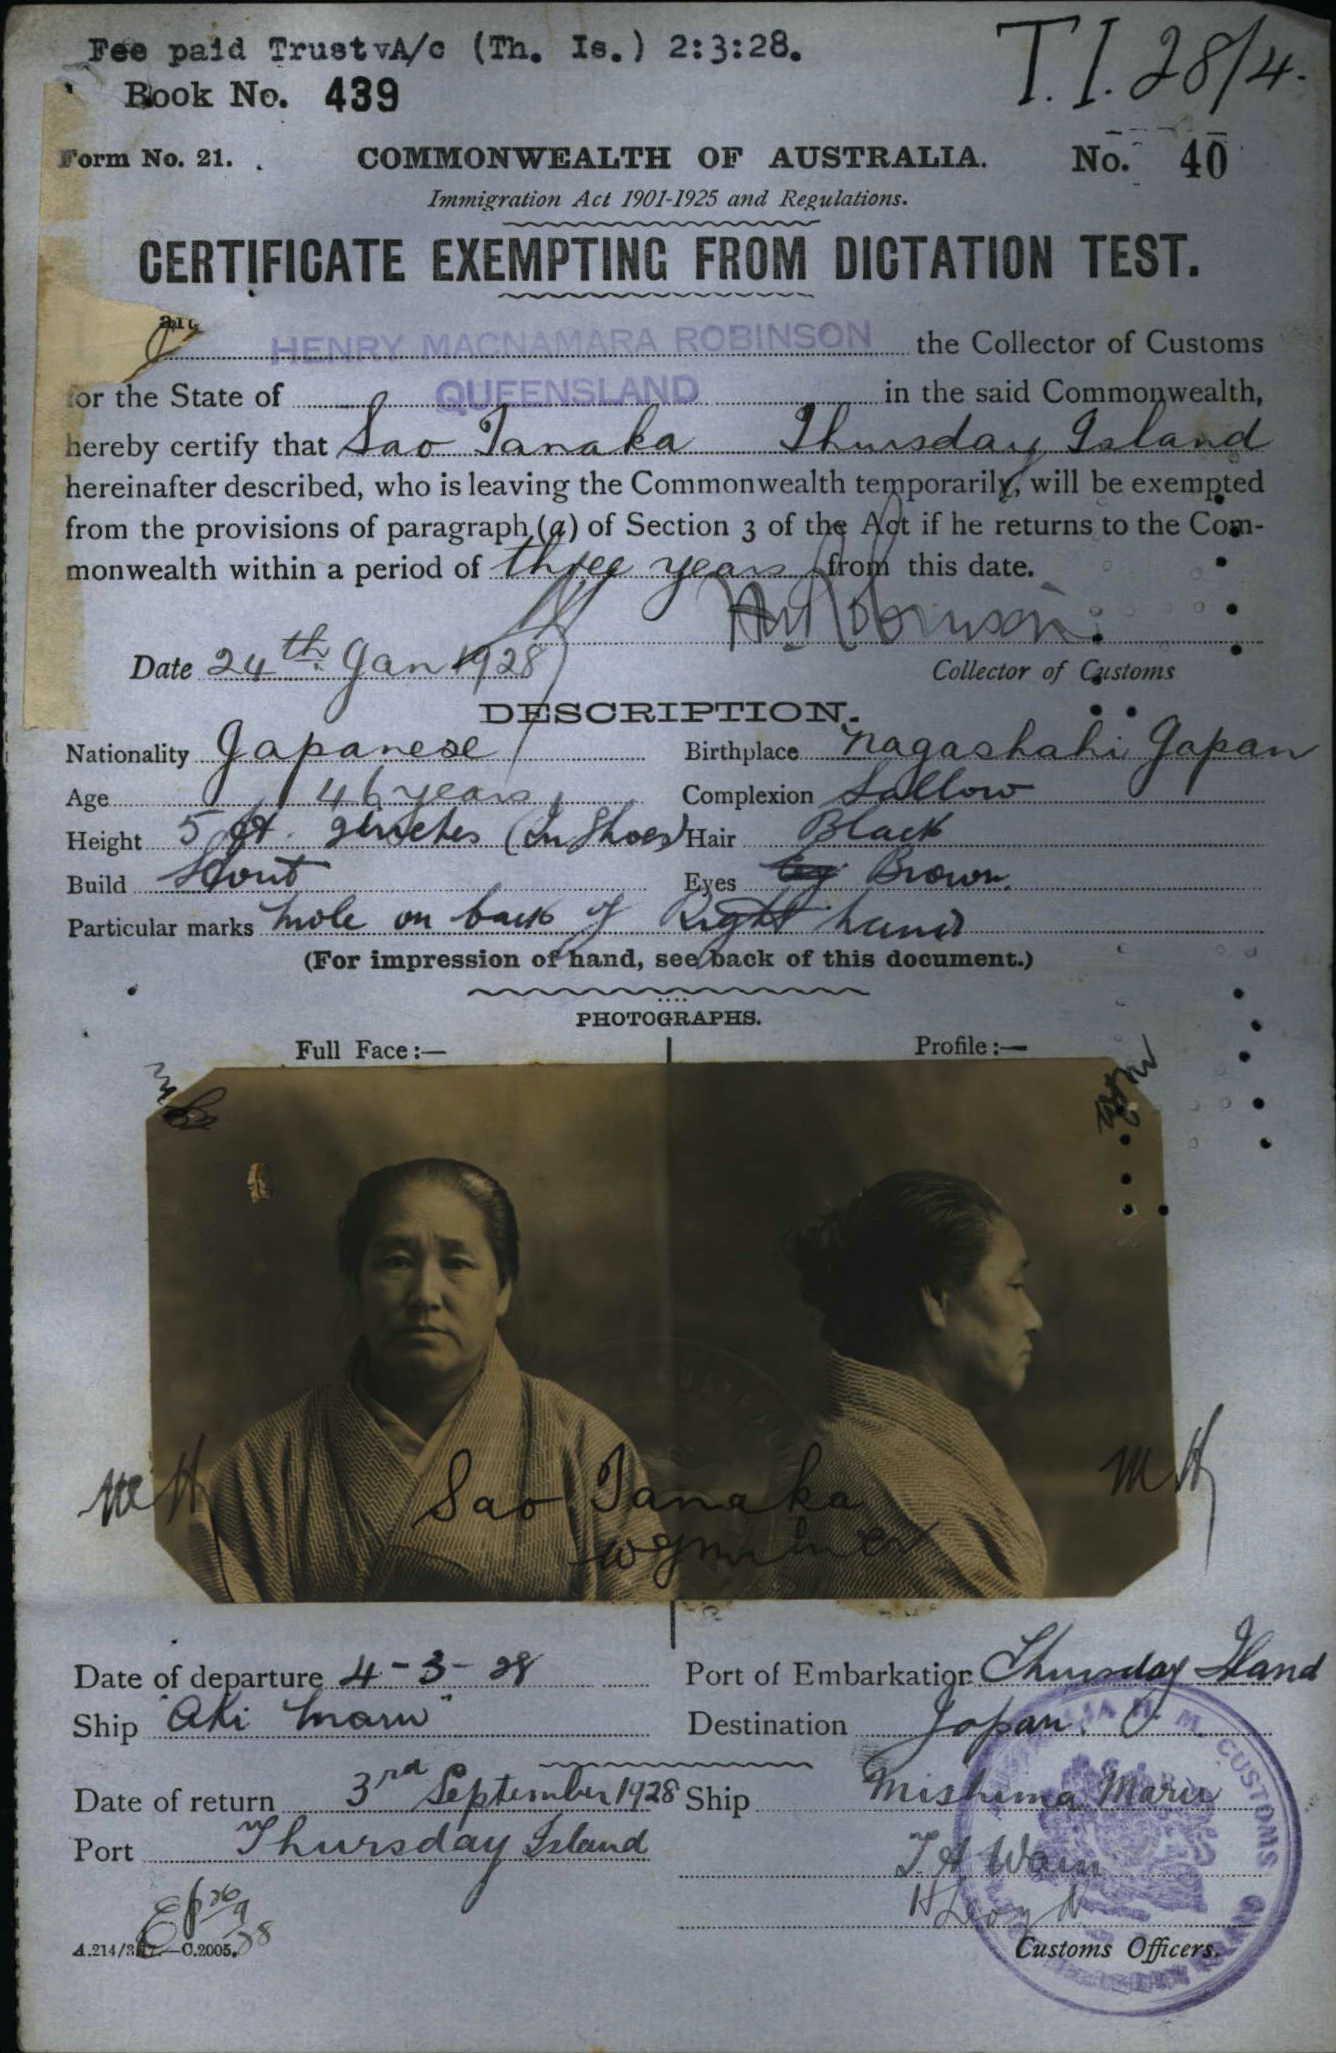 Fee paid Trust A/c (Th. Is.) 2:3:28.
T.I. 28/4.
Book No. 439
Form No. 21.
COMMONWEALTH OF AUSTRALIA.
No. 40
Immigration Act 1901-1925 and Regulations.
CERTIFICATE EXEMPTING FROM DICTATION TEST.
HENRY MACNAMARA ROBINSON the Collector of Customs
for the State of QUEENSLAND in the said Commonwealth,
hereby certify that Sao Tanaka Thursday Island
hereinafter described, who is leaving the Commonwealth temporarily, will be exempted
from the provisions of paragraph (a) of Section 3 of the Act if he returns to the Com-
monwealth within a period of three years from this date.
HM Robinson
Date 24th Jan 1928
Collector of Customs
DESCRIPTION.
Nationality Japanese
Birthplace Nagashaki Japan
Age 46 years
Complexion Sallow
Height 5 ft. 2 inches (In Shoes)
Hair Black
Build Stout
Eyes Brown.
Particular marks Mole on back of Right hand
(For impression of hand, see back of this document.)
PHOTOGRAPHS.
Full Face:—
Profile:—
MH
MH
Sao Tanaka
Date of departure 4-3-28
Port of Embarkation Thursday Island
Ship "Aki Maru"
Destination Japan.
Date of return 3rd September 1928
Ship Mishima Maru
Port Thursday Island
Customs Officers.
A.214/3.17.—C.2005.
H. M. CUSTOMS